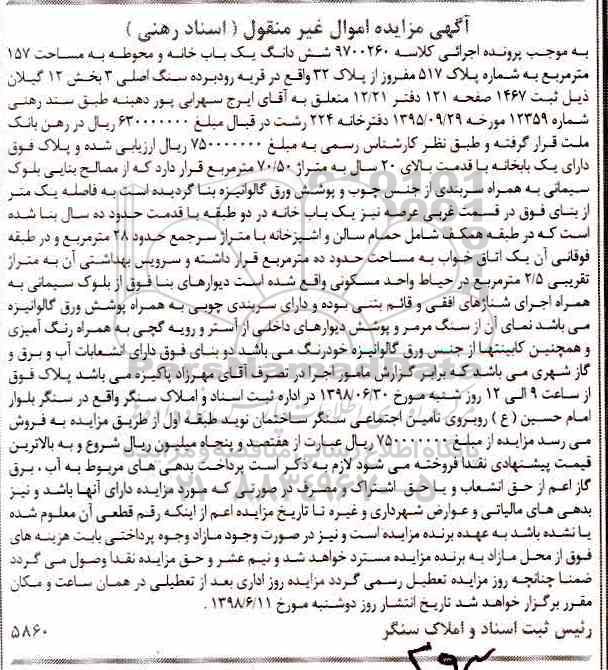 آگهی مزایده اموال غیر منقول ( اسناد رهنی )
به موجب پرونده اجرائی کلاسه ۹۷۰۰۲۶۰ شش دانگ یک باب خانه و محوطه به مساحت ۱۵۷
مترمربع به شماره پلاک ۵۱۷ مفروز از پلاک ۳۲ واقع در قریه رودبرده سنگ اصلی ۳ بخش ۱۲ گیلان
ذیل ثبت ۱۴۶۷ صفحه ۱۲۱ دفتر ۱۲/۲۱ متعلق به آقای ایرج سهرابی پور دهبنه طبق سند رهنی
شماره ۱۲۳۵۹ مورخه ۱۳۹۵/۰۹/۲۹ دفترخانه ۲۲۴ رشت در قبال مبلغ ۶۳۰۰۰۰۰۰۰ ریال در رهن بانک
ملت قرار گرفته و طبق نظر کارشناس رسمی به مبلغ ۷۵۰۰۰۰۰۰۰ ریال ارزیابی شده و پلاک فوق
دارای یک بابخانه با قدمت بالای ۲۰ سال به متراژ ۷۰/۵۰ مترمربع قرار دارد که از مصالح بنایی بلوک
سیمانی به همراه سربندی از جنس چوب و پوشش ورق گالوانیزه بنا گردیده است به فاصله یک متر
از بنای فوق در قسمت غربی عرصه نیز یک باب خانه در دو طبقه با قدمت حدود ده سال بنا شده
است که در طبقه همکف شامل حمام سالن و اشپزخانه با متراژ سرجمع حدود ۲۸ مترمربع و در طبقه
فوقانی آن یک اتاق خواب به مساحت حدود ده مترمربع قرار داشته و سرویس بهداشتی آن به متراژ
تقریبی ۲/۵ مترمربع در حیاط واحد مسکونی واقع شده است دیوارهای بنا فوق از بلوک سیمانی به
همراه اجرای شناژهای افقی و قائم بتنی بوده و دارای سربندی چوبی به همراه پوشش ورق گالوانیزه
می باشد نمای آن از سنگ مرمر و پوشش دیوارهای داخلی از آستر و رویه گچی به همراه رنگ آمیزی
و همچنین کابینتها از جنس ورق گالوانیزه خودرنگ می باشد دو بنای فوق دارای انشعابات آب و برق و
گاز شهری می باشد که برابر گزارش مامور اجرا در تصرف آقای مهرزاد پاکیزه می باشد پلاک فوق
از ساعت ۹ الی ۱۲ روز شنبه مورخ ۱۳۹۸/۰۶/۳۰ در اداره ثبت اسناد و املاک سنگر واقع در سنگر بلوار
امام حسین ( ع ) روبروی تامین اجتماعی سنگر ساختمان نوید طبقه اول از طریق مزایده به فروش
می رسد مزایده از مبلغ ۷۵۰۰۰۰۰۰۰ ریال عبارت از هفتصد و پنجاه میلیون ریال شروع و به بالاترین
قیمت پیشنهادی نقدا فروخته می شود لازم به ذکر است پرداخت بدهی های مربوط به آب ، برق
گاز اعم از حق انشعاب و یا حق اشتراک و مصرف در صورتی که مورد مزایده دارای آنها باشد و نیز
بدهی های مالیاتی و عوارض شهرداری و غیره تا تاریخ مزایده اعم از اینکه رقم قطعی آن معلوم شده
یا نشده باشد به عهده برنده مزایده است و نیز در صورت وجود مازاد وجوه پرداختی بابت هزینه های
فوق از محل مازاد به برنده مزایده مسترد خواهد شد و نیم عشر و حق مزایده نقدا وصول می گردد
ضمنا چنانچه روز مزایده تعطیل رسمی گردد مزایده روز اداری بعد از تعطیلی در همان ساعت و مکان
مقرر برگزار خواهد شد تاریخ انتشار روز دوشنبه مورخ ۱۳۹۸/۶/۱۱ .
رئیس ثبت اسناد و املاک سنگر
۵۸۶۰